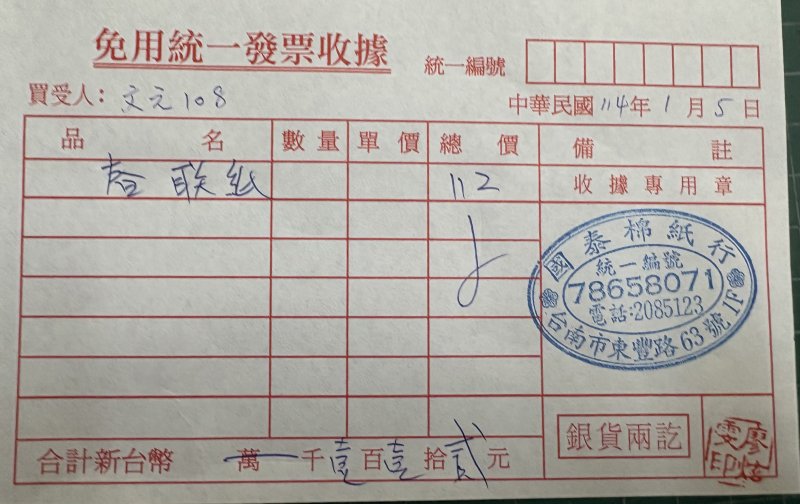 免用統一發票收據
統一編號
買受人: 文元108
中華民國114年1月5日
品名 數量 單價 總價 備註
春联紙 112
收據專用章
國泰棉紙行
統一編號
78658071
電話:2085123
台南市東豐路63號1F
銀貨兩訖
合計新台幣 萬 千壹百壹拾貳元